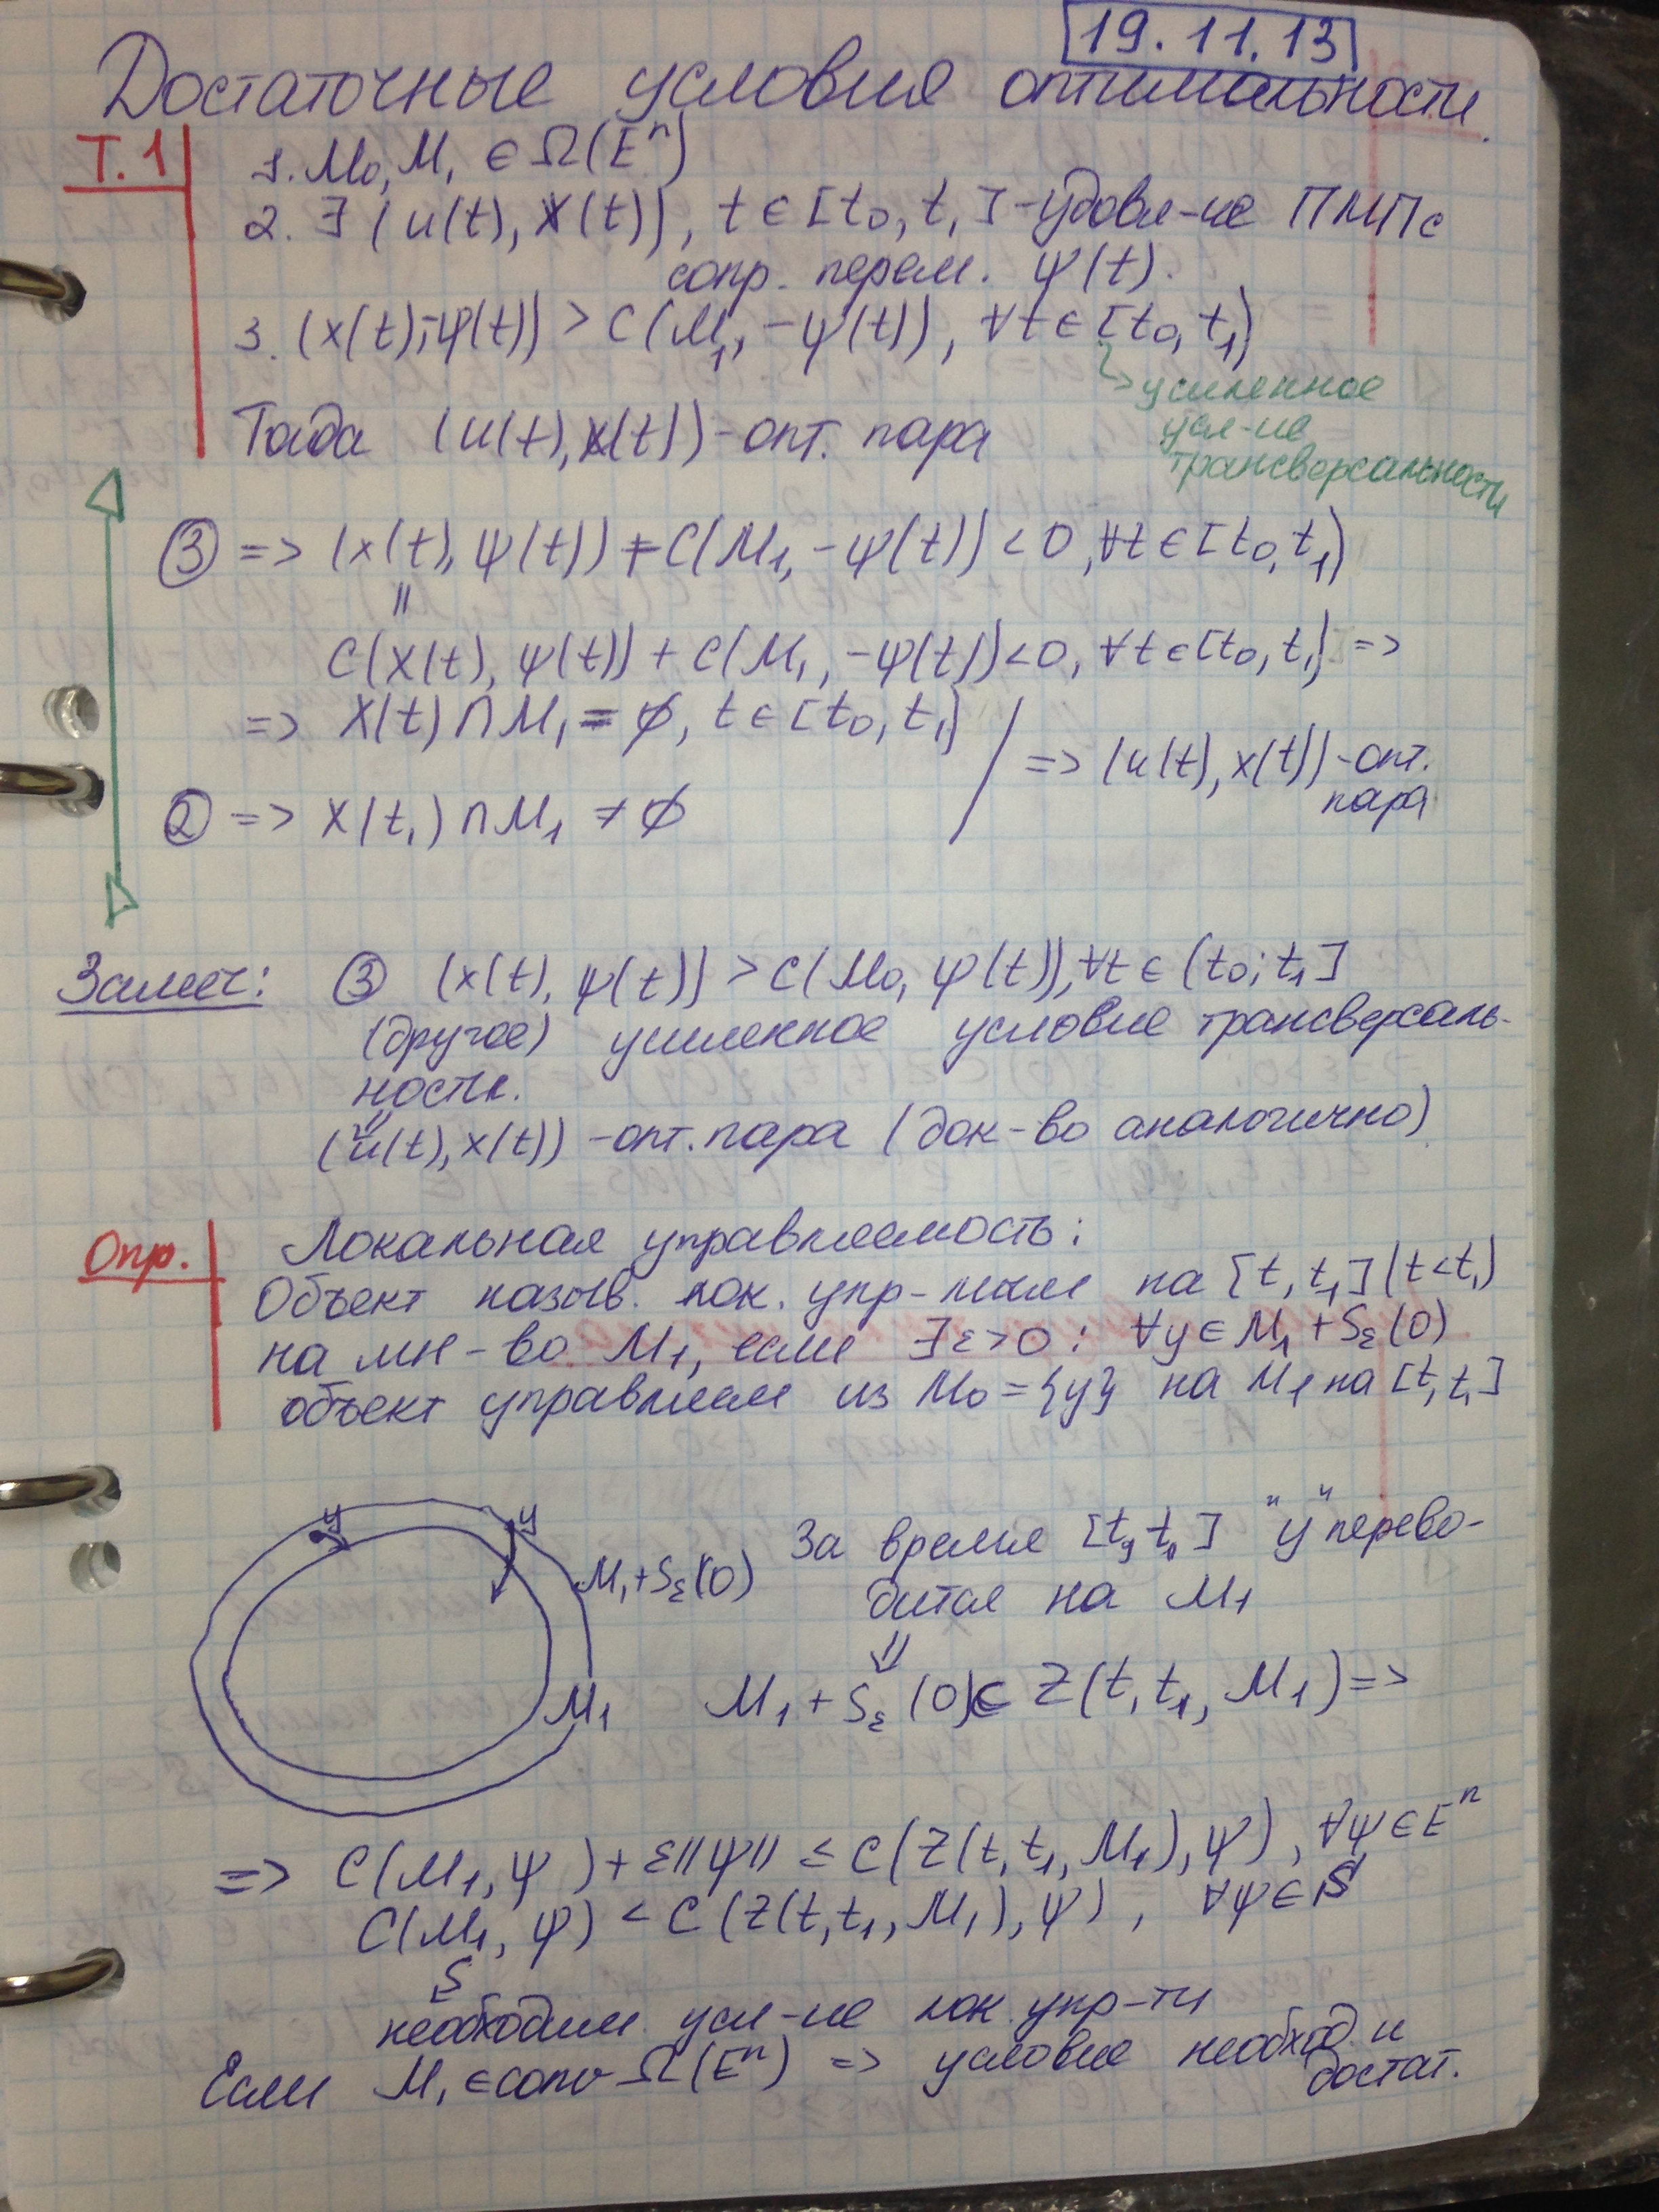 19.11.13
Достаточные условия оптимальности.
Т.1
1. M₀, M₁ ∈ Ω(Eⁿ)
2. ∃ (u(t), x(t)), t ∈ [t₀, t₁] - удовл-ие ПМПс
сопр. перем. ψ(t).
3. (x(t), -ψ(t)) > C(M₁, -ψ(t)), ∀t ∈ [t₀, t₁)
усиленное
усл-ие
трансверсальности
Тогда (u(t), x(t)) - опт. пара
③ => (x(t), ψ(t)) + C(M₁, -ψ(t)) < 0, ∀t ∈ [t₀, t₁)
||
C(X(t), ψ(t)) + C(M₁, -ψ(t)) < 0, ∀t ∈ [t₀, t₁) =>
=> X(t) ∩ M₁ = ∅, t ∈ [t₀, t₁)
=> (u(t), x(t)) - опт.
пара
② => X(t₁) ∩ M₁ ≠ ∅
Замеч: ③ (x(t), ψ(t)) > C(M₀, ψ(t)), ∀t ∈ (t₀; t₁]
(другое) усиленное условие трансверсаль-
ности.
⇓
(u(t), x(t)) - опт. пара (док-во аналогично)
Опр.
Локальная управляемость:
Объект назыв. лок. упр-мым на [t, t₁] (t < t₁)
на мн-во M₁, если ∃ε > 0 : ∀y ∈ M₁ + Sε(0)
объект управляем из M₀ = {y} на M₁ на [t, t₁]
y y
M₁ + Sε(0)
M₁
За время [t, t₀] "y" перево-
дится на M₁
⇓
M₁ + Sε(0) ⊂ Z(t, t₁, M₁) =>
=> C(M₁, ψ) + ε||ψ|| ≤ C(Z(t, t₁, M₁), ψ), ∀ψ ∈ Eⁿ
C(M₁, ψ) < C(Z(t, t₁, M₁), ψ), ∀ψ ∈ S
необходим. усл-ие лок. упр-ти
Если M₁ ∈ conv Ω(Eⁿ) => условие необход. и
достат.